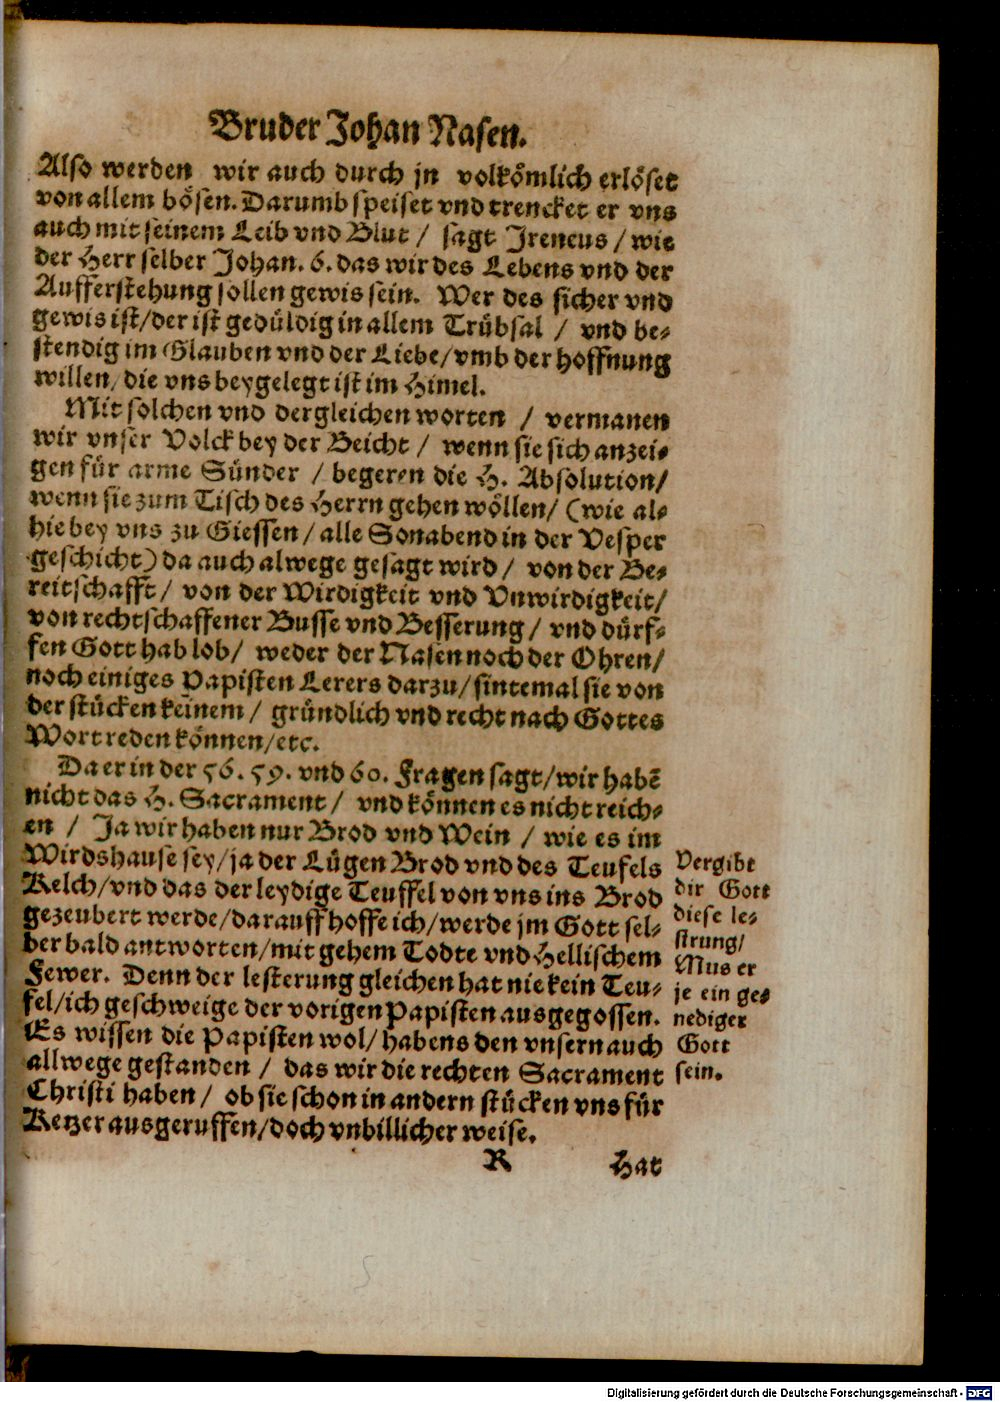 Bruder Johan Nasen.
Also werden wir auch durch jn volkömlich erlöset
von allem bösen. Darumb speiset vnd trencket er vns
auch mit seinem Leib vnd Blut / sagt Ireneus / wie
der Herr selber Johan. 6. das wir des Lebens vnd der
Aufferstehung sollen gewis sein. Wer des sicher vnd
gewis ist/der ist gedüldig in allem Trübsal / vnd be-
stendig im Glauben vnd der Liebe/vmb der hoffnung
willen/die vns beygelegt ist im Himel.
Mit solchen vnd dergleichen worten / vermanen
wir vnser Volck bey der Beicht / wenn sie sich anzei-
gen für arme Sünder / begeren die H. Absolution/
wenn sie zum Tisch des Herrn gehen wöllen/ (wie al-
hie bey vns zu Giessen/alle Sonabend in der Vesper
geschicht) da auch alwege gesagt wird / von der Be-
reitschafft/ von der Wirdigkeit vnd Vnwirdigkeit/
von rechtschaffener Busse vnd Besserung/ vnd dürf-
fen Gott hab lob/ weder der Nasen noch der Ohren/
noch einiges Papisten Lerers darzu/sintemal sie von
der stücken keinem/ gründlich vnd recht nach Gottes
Wort reden können/etc.
Da er in der 56. 59. vnd 60. Fragen sagt/wir habē
nicht das H. Sacrament/ vnd können es nicht reich-
en / Ja wir haben nur Brod vnd Wein / wie es im
Wirdshause sey/ja der Lügen Brod vnd des Teufels
Kelch/vnd das der leydige Teuffel von vns ins Brod
gezeubert werde/darauff hoffe ich/werde jm Gott sel-
ber bald antworten/mit gehem Todte vnd Hellischem
Fewer. Denn der lesterung gleichen hat nie kein Teu-
fel/ich geschweige der vorigen Papisten ausgegossen.
Es wissen die Papisten wol/habens den vnsern auch
allwege gestanden / das wir die rechten Sacrament
Christi haben/ ob sie schon in andern stücken vns für
Ketzer ausgeruffen/doch vnbillicher weise.
Vergibt
dir Gott
diese le-
strung/
Mus er
je ein ge-
nediger
Gott
sein.
R Hat
Digitalisierung gefördert durch die Deutsche Forschungsgemeinschaft - DFG